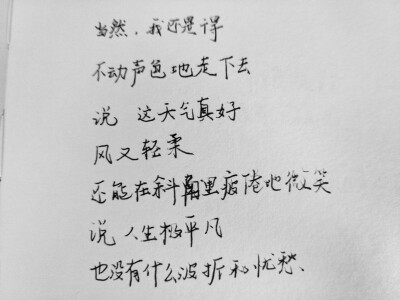 当然，我还是得
不动声色地走下去
说 这天气真好
风又轻柔
还能在斜阳里疲倦地微笑
说 人生极平凡
也没有什么波折和忧愁、